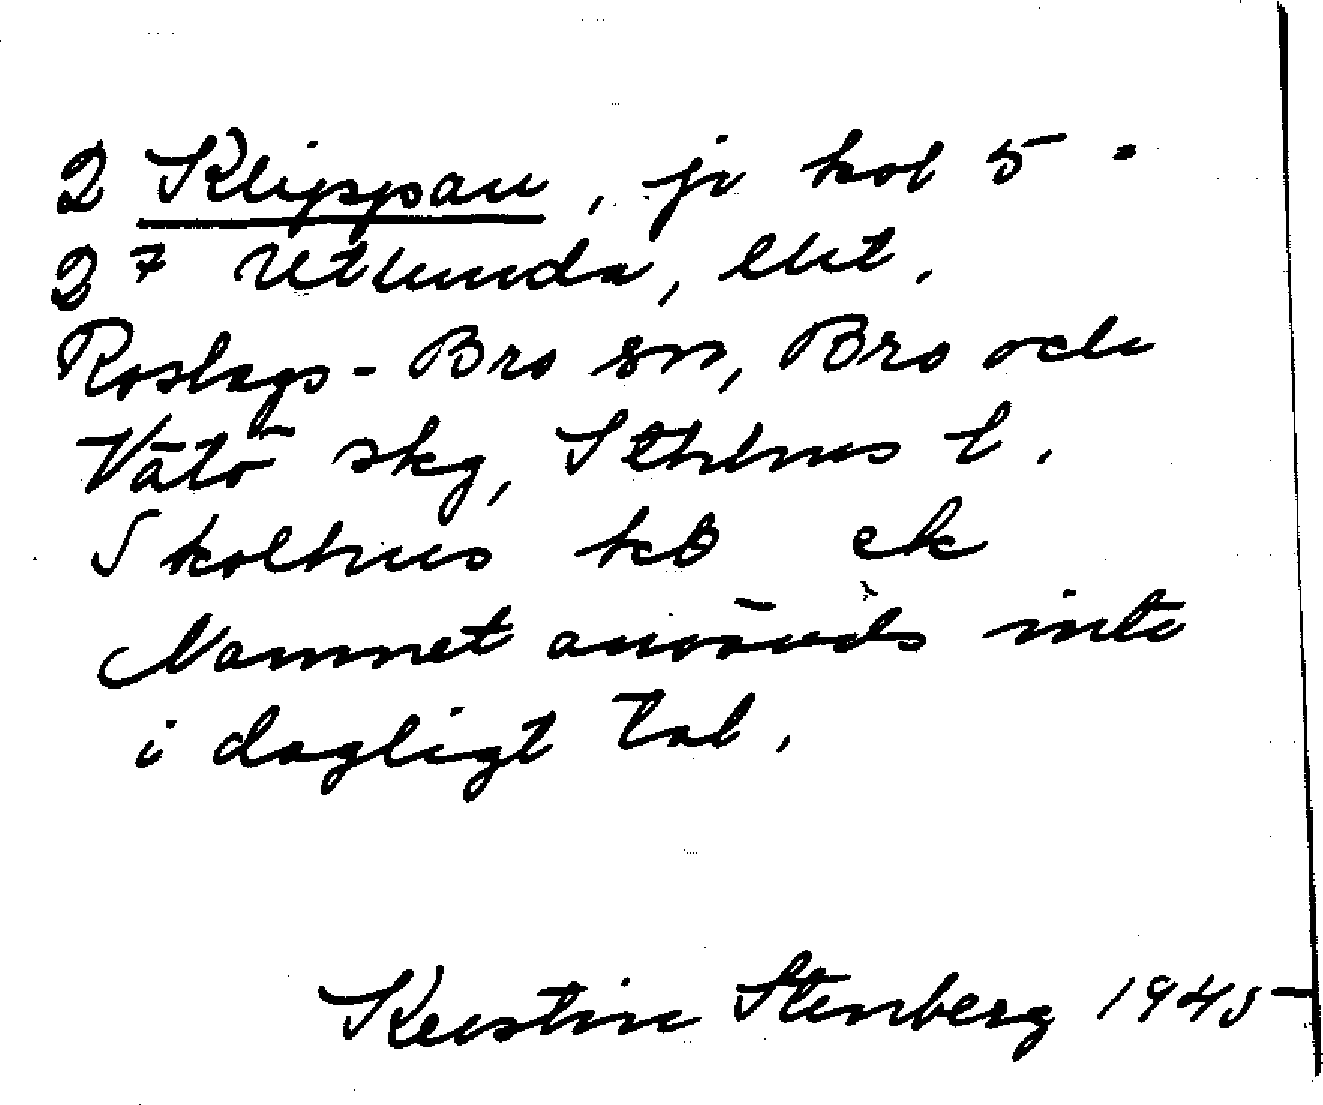 2 Klippan, jr kol 5.
2⁷ Utlunda, lht.
Roslags-Bro sn, Bro och
Vätö skg, Sthlms l.
Skolhus kB ek
Namnet används inte
i dagligt tal.
Kerstin Stenberg 1945